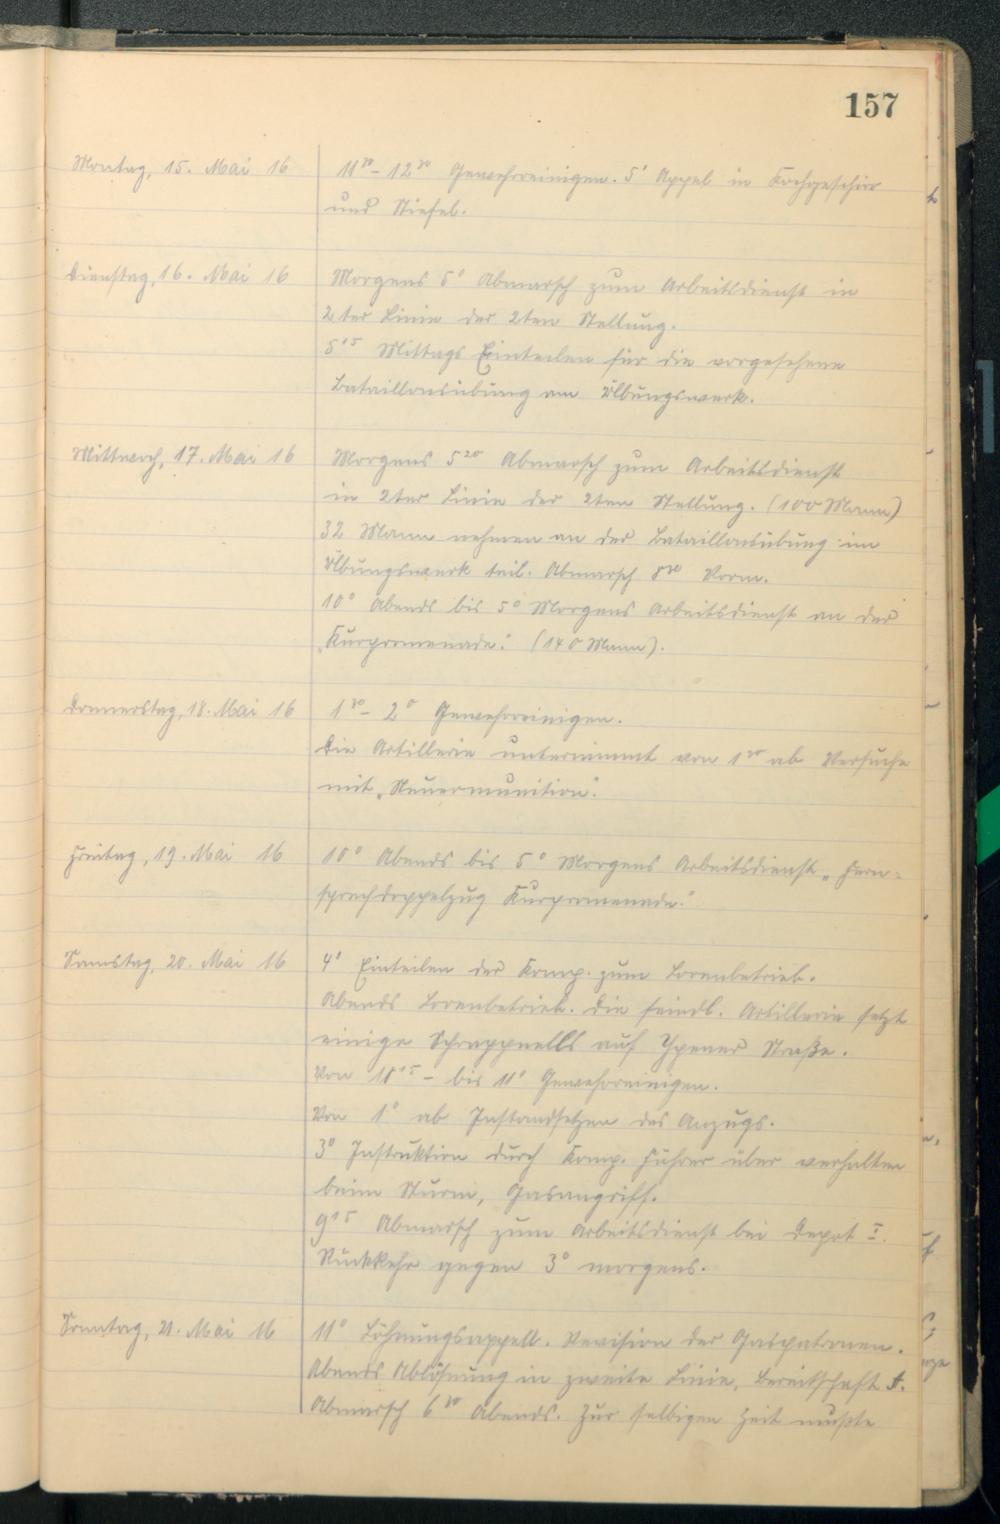 157
Montag, 15. Mai 16 11³⁰ - 12³⁰ Gewehrreinigen. 5° Appel in Kochgeschirr
und Stiefel.
Dienstag, 16. Mai 16 Morgens 5° Abmarsch zum Arbeitsdienst in
2ter Linie der 2ten Stellung.
5¹⁵ Mittags Einteilen für die vorgesehene
Bataillonsübung am Übungswerk.
Mittwoch, 17. Mai 16 Morgens 5²⁰ Abmarsch zum Arbeitsdienst
in 2ter Linie der 2ten Stellung. (100 Mann)
32 Mann nehmen an der Bataillonsübung im
Übungswerk teil. Abmarsch 8³⁰ Vorm.
10° Abends bis 5° Morgens Arbeitsdienst an der
„Kurpromenade." (140 Mann).
Donnerstag, 18. Mai 16 1³⁰ - 2° Gewehrreinigen.
Die Artillerie unternimmt von 1³⁰ ab Versuche
mit „Steuermunition."
Freitag, 19. Mai 16 10° Abends bis 5° Morgens Arbeitsdienst „Fern-
sprechdoppelzug Kurpromenade."
Samstag, 20. Mai 16 4° Einteilen der Komp. zum Lorenbetrieb.
Abends Lorenbetrieb. Die feindl. Artillerie setzt
einige Schrappnells auf Ypener Straße.
Von 10¹⁵ - bis 11° Gewehrreinigen.
Von 1° ab Instandsetzen des Anzugs.
3° Instruktion durch Komp. Führer über verhalten
beim Sturm, Gasangriff.
9¹⁵ Abmarsch zum Arbeitsdienst bei Depot I.
Rückkehr gegen 3° morgens.
Sonntag, 21. Mai 16 11° Löhnungsappell. Revision der Gaspatronen.
Abends Ablösung in zweite Linie, Bereitschaft
Abmarsch 6³⁰ Abends. Zur selbigen Zeit mußte